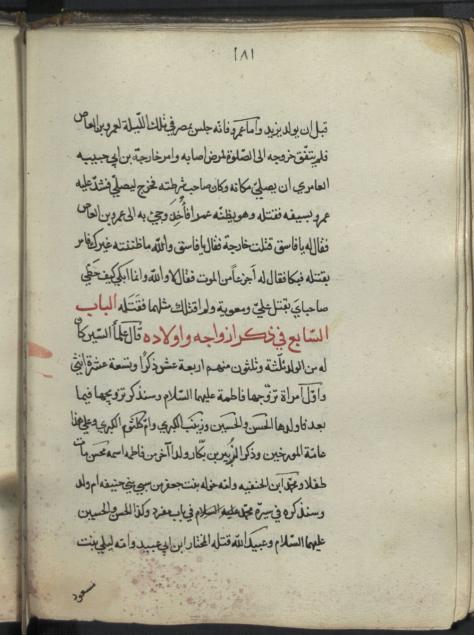 ١٨١
قبل ان يولد يزيد واما عمرو فانه جلس بمصر في تلك الليلة لعمرو بن العاص
فلم يتفق خروجه الى الصلوة لمرض اصابه وامر خارجة بن ابي حبيبه
العامري ان يصلي مكانه وكان صاحب شرطته فخرج ليصلي فشد عليه
عمرو بسيفه فقتله وهو يظنه عمرا فأُخِذَ وجيء به الى عمرو بن العاص
فقال له يا فاسق قتلت خارجة فقال يا فاسق والله ما ظننته غيرك فامر
بقتله فبكا فقال له أجزعا من الموت فقال لا والله وانا ابكي كيف حظي
صاحباي بقتل علي ومعوية ولم اقتلك مثلهما فقتله الباب
السابع في ذكر ازواجه واولاده قال علما السير كان
له من الولد ثلثة وثلثون منهم اربعة عشر ذكرًا وتسعة عشرة انثى
واول امراة تزوجها فاطمة عليهما السلام وسنذكر تزويجها فيما
بعد فاولدها الحسن والحسين وزينب الكبرى وام كلثوم الكبرى وعلى هذا
عامة المورخين وذكر الزبير بن بكار ولدا آخر من فاطمه اسمه محسن مات
طفلا ومحمد ابن الحنفيه وامه خوله بنت جعفر من سبي بني حنيفه ام ولد
وسنذكره في سيرة محمد عليه السلام في باب مفرد وكذا الحسن والحسين
عليهما السلام وعبيد الله قتله المختار ابن ابي عبيد وامه ليلى بنت
مسعود